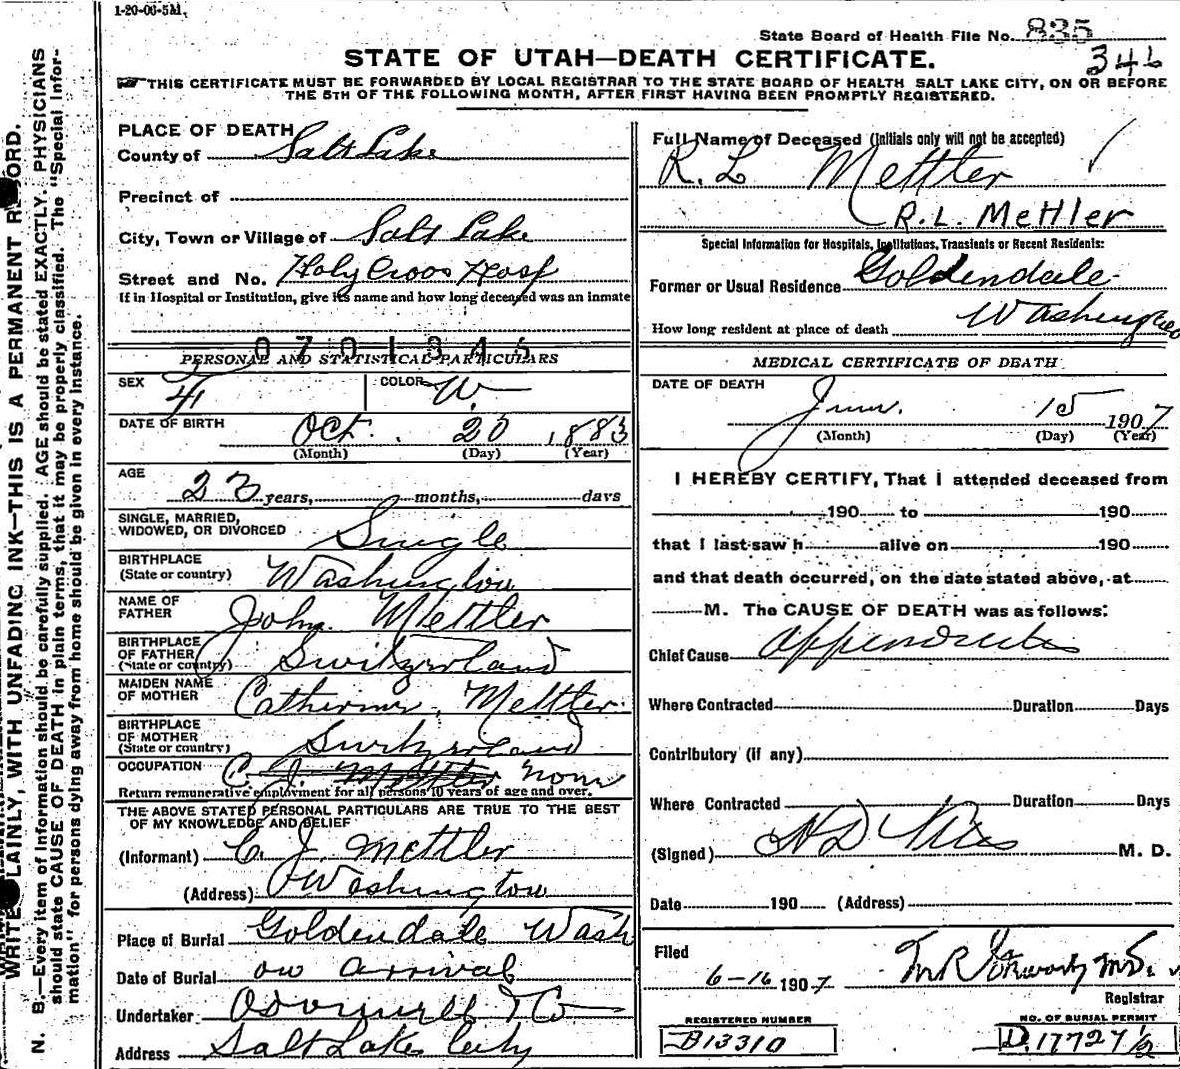 1-20-06-5M.
State Board of Health File No. 835
346
STATE OF UTAH—DEATH CERTIFICATE.
THIS CERTIFICATE MUST BE FORWARDED BY LOCAL REGISTRAR TO THE STATE BOARD OF HEALTH SALT LAKE CITY, ON OR BEFORE
THE 5TH OF THE FOLLOWING MONTH, AFTER FIRST HAVING BEEN PROMPTLY REGISTERED.
WRITE PLAINLY, WITH UNFADING INK—THIS IS A PERMANENT RECORD.
N. B.—Every item of information should be carefully supplied. AGE should be stated EXACTLY. PHYSICIANS
should state CAUSE OF DEATH in plain terms, that it may be properly classified. The "Special Infor-
mation" for persons dying away from home should be given in every instance.
PLACE OF DEATH
County of Salt Lake
Precinct of
City, Town or Village of Salt Lake
Street and No. Holy Cross Hosp
If in Hospital or Institution, give its name and how long deceased was an inmate
0701345
PERSONAL AND STATISTICAL PARTICULARS
SEX F COLOR W.
DATE OF BIRTH Oct. 20, 1883
(Month) (Day) (Year)
AGE
23 years, months, days
SINGLE, MARRIED,
WIDOWED, OR DIVORCED Single
BIRTHPLACE
(State or country) Washington
NAME OF
FATHER John Mettler
BIRTHPLACE
OF FATHER
(State or country) Switzerland
MAIDEN NAME
OF MOTHER Catherine Mettler
BIRTHPLACE
OF MOTHER
(State or country) Switzerland
OCCUPATION C. J. Mettler None
Return remunerative employment for all persons 10 years of age and over.
THE ABOVE STATED PERSONAL PARTICULARS ARE TRUE TO THE BEST
OF MY KNOWLEDGE AND BELIEF
(Informant) C. J. Mettler
(Address) Washington
Place of Burial Goldendale Wash
Date of Burial on arrival
Undertaker O'Donnell & Co
Address Salt Lake City
Full Name of Deceased (Initials only will not be accepted)
R. L Mettler
R. L. Mettler
Special Information for Hospitals, Institutions, Transients or Recent Residents:
Former or Usual Residence Goldendale
Washington
How long resident at place of death
MEDICAL CERTIFICATE OF DEATH
DATE OF DEATH
June 15 1907
(Month) (Day) (Year)
I HEREBY CERTIFY, That I attended deceased from
190 to 190
that I last saw h alive on 190
and that death occurred, on the date stated above, at
M. The CAUSE OF DEATH was as follows:
Chief Cause Appendicitis
Where Contracted Duration Days
Contributory (if any)
Where Contracted Duration Days
(Signed) M. D.
Date 190 (Address)
Filed
6-16 1907 M.D.
Registrar
REGISTERED NUMBER
B13310
NO. OF BURIAL PERMIT
D.17727 1/2